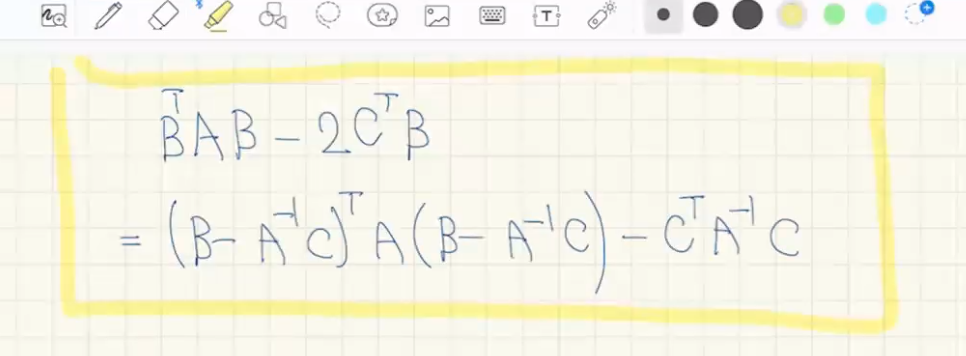 BᵀAB − 2CᵀB
= (B − A⁻¹C)ᵀ A (B − A⁻¹C) − CᵀA⁻¹C